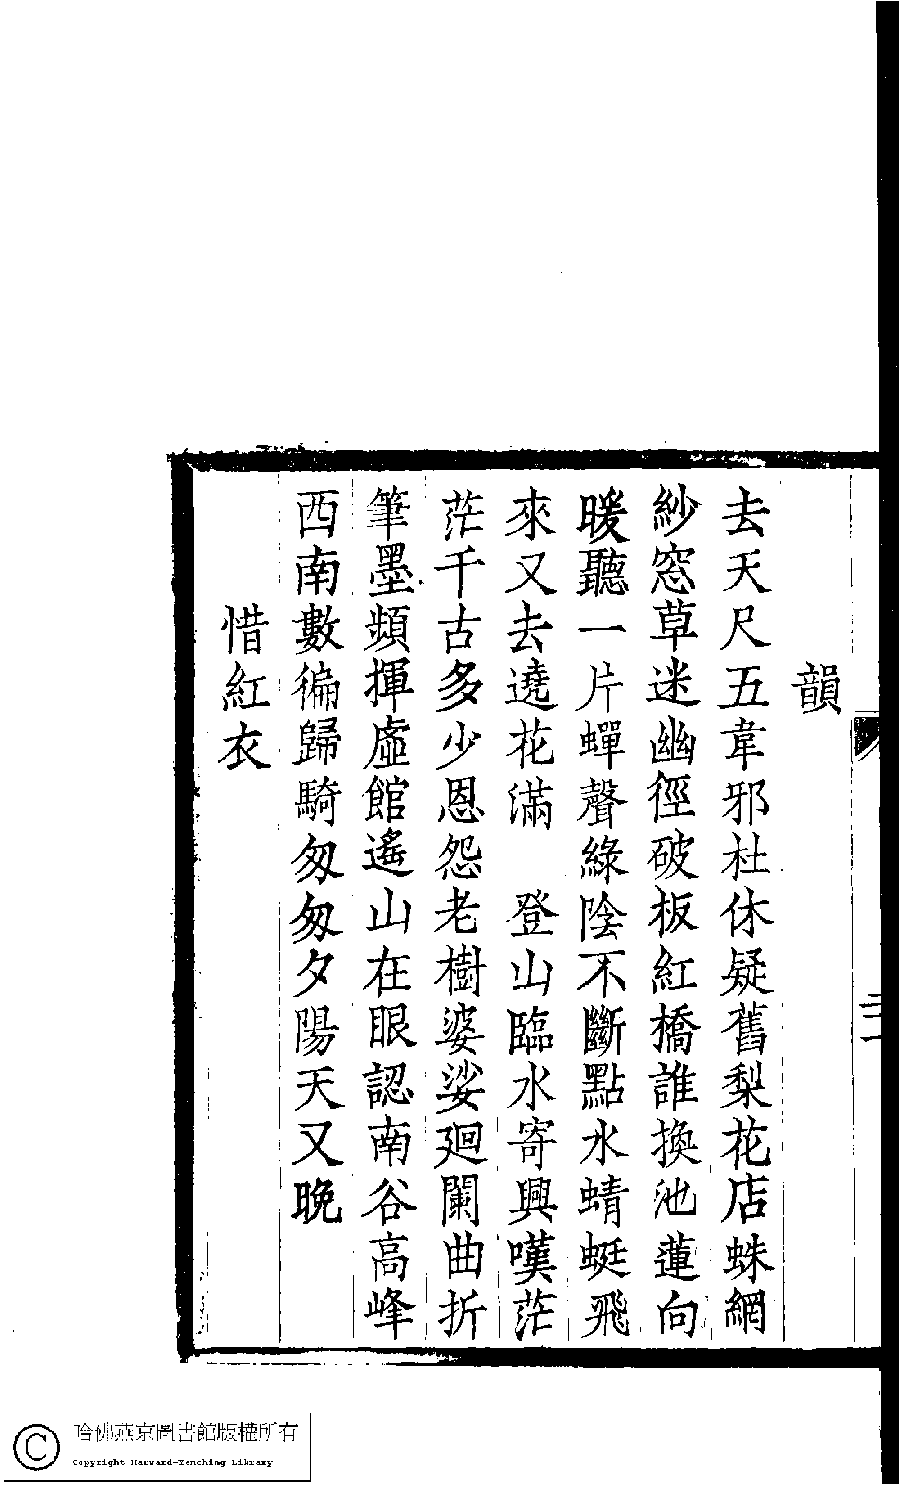 韻
去天尺五韋邪杜休疑舊梨花店蛛網
紗窓草迷幽徑破板紅橋誰換池蓮向
暖聽一片蟬聲綠陰不斷點水蜻蜓飛
來又去遶花滿　登山臨水寄興嘆茫
茫千古多少恩怨老樹婆娑廻闌曲折
筆墨頻揮虛館遙山在眼認南谷高峰
西南數徧歸騎匆匆夕陽天又晚
惜紅衣
哈佛燕京圖書館版權所有
Copyright Harvard-Yenching Library